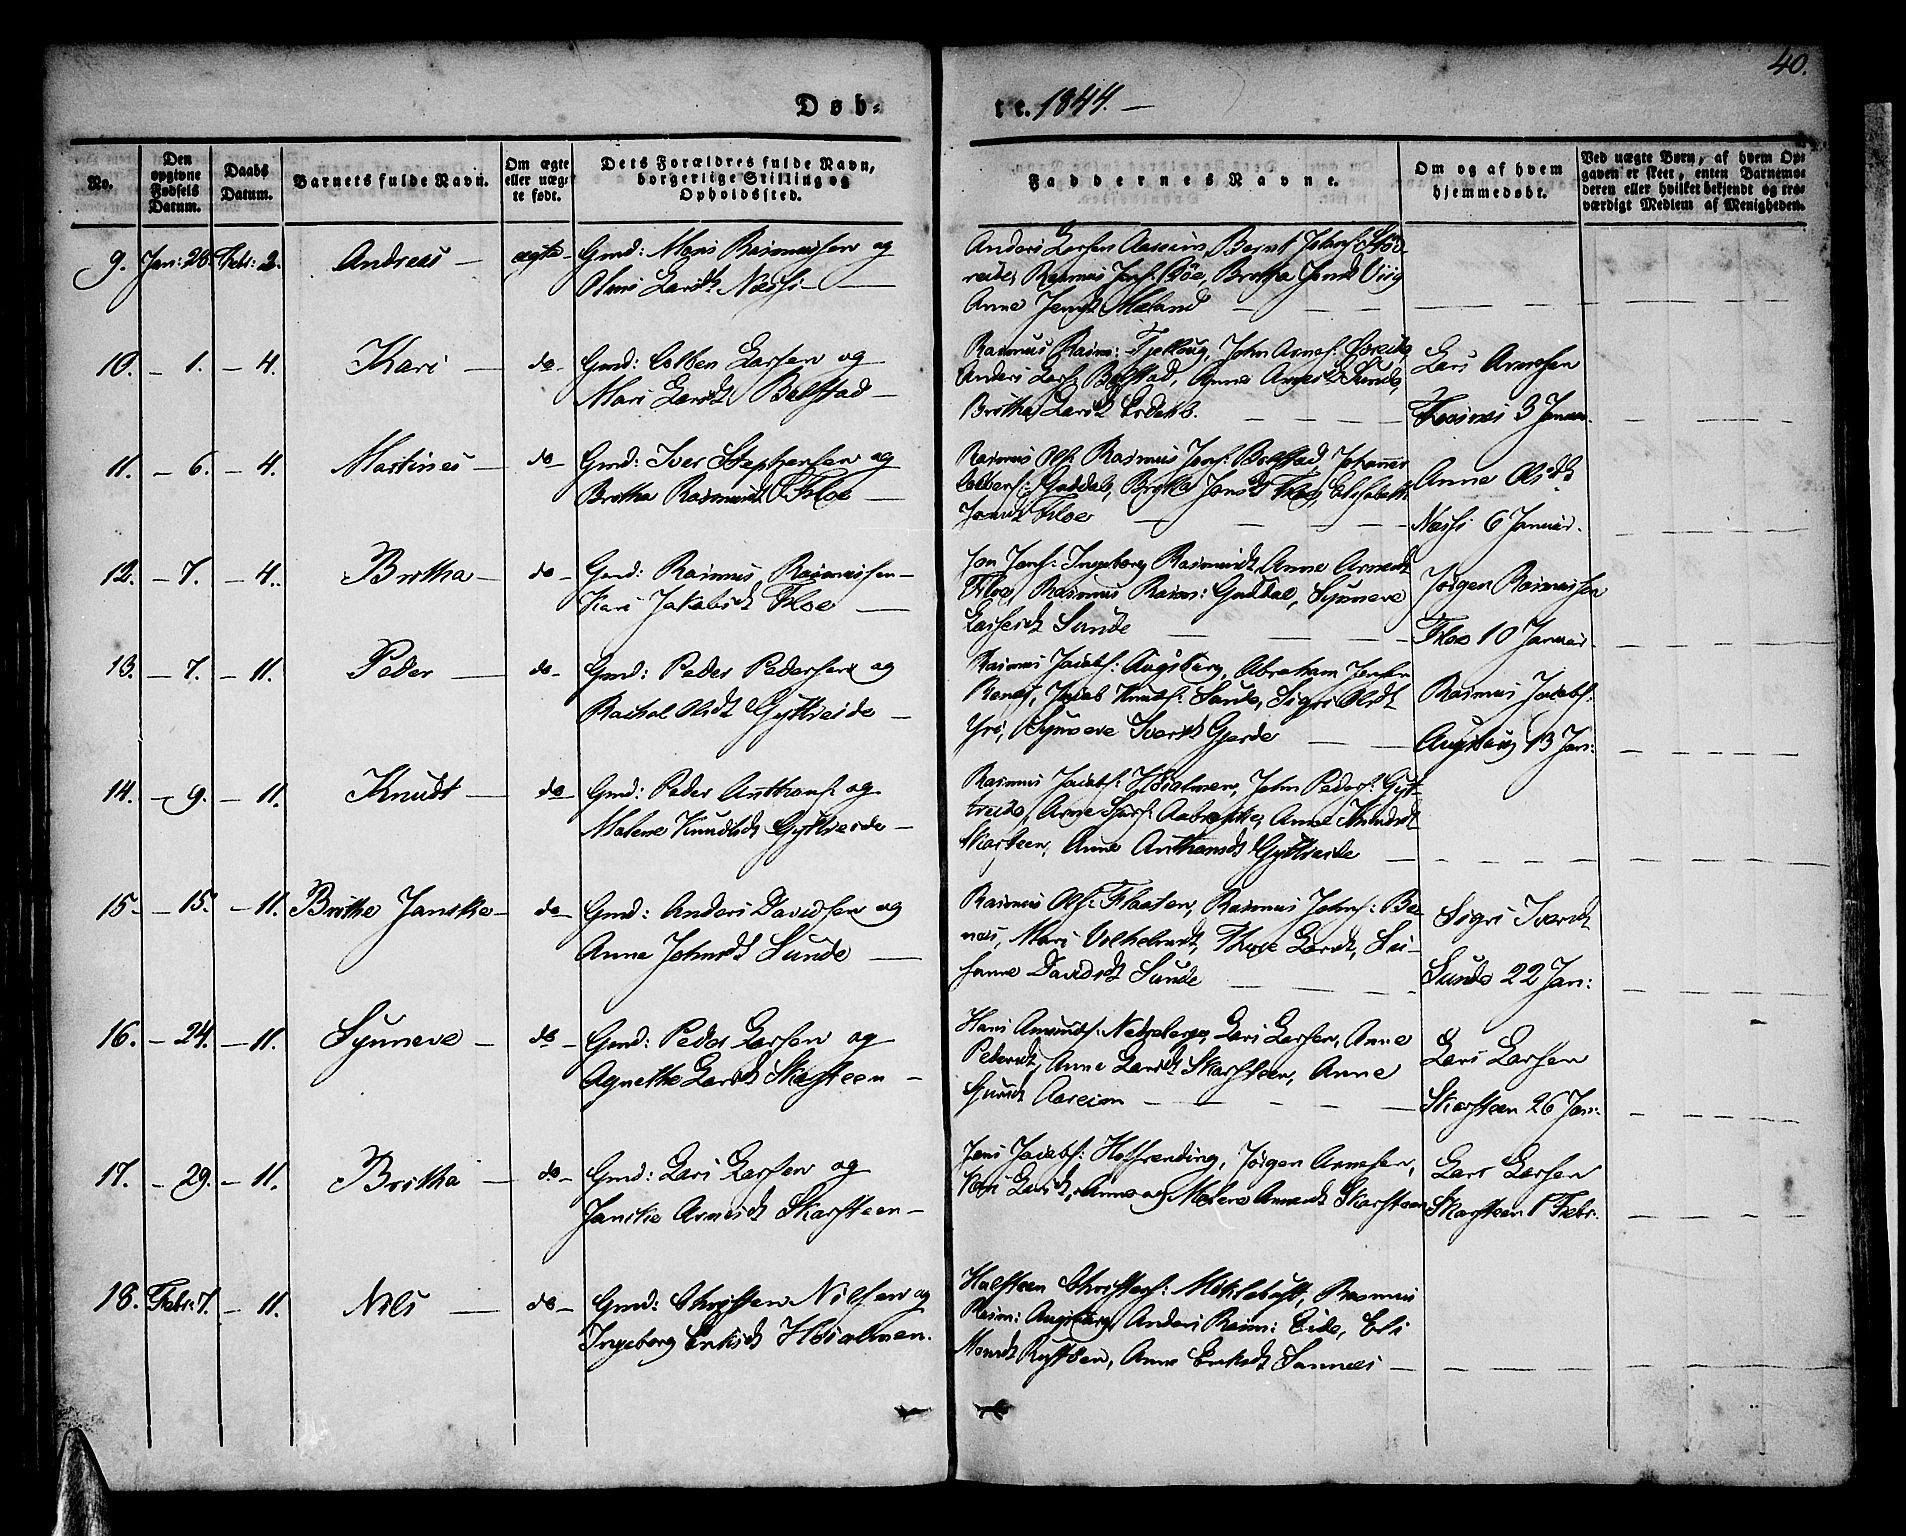 40.
Døb- te. 1844.
No.
Den opgivne Fødsels Datum.
Daabs Datum.
Barnets fulde Navn.
Om ægte eller uægte født.
Dets Forældres fulde Navn, borgerlige Stilling og Opholdssted.
Faddernes Navne.
Om og af hvem hjemmedøbt.
Ved uægte Børn, af hvem Opgaven er skeet, enten Barnemoderen eller hvilket bekjendt og troværdigt Medlem af Menigheden.
9. Jan: 28. Febr: 2. Andreas ægte Gmd: Mons Rasmussen og
Larsdt Næss
Anders Larsen Aaseim, Bernt Johns:
Rasmus Jons: Bøe, Brotha Jonsdt Viig
Anne Jensdt Mæland
10. 1. 4. Kari do Gmd: Colben Larsen og
Mari Larsdt Bolstad
Rasmus Rasm: John Arnes:
Anders Lars: Bolstad, Anne Sunde,
Brotha Larsdt
Lars Arnesen
3 Januar
11. 6. 4. Martines do Gmd: Iver Stephensen og
Brotha Rasmusdt Floe
Rasmus Ols: Rasmus Jons: Bolstad, Johannes
Colbens: Guddal, Brotha Jonsdt Floe, Elisabeth
Jonsdt Floe
Anne Olsdt
Næss 6 Januar.
12. 7. 4. Brotha do Gmd: Rasmus Rasmussen
Kari Jakobsdt Floe
Jon Jons: Ingeborg Rasmusdt, Anne Arnesdt
Floe, Rasmus Rasm: Guddal, Synneve
Larsesdt Sunde
Jørgen Rasmussen
Floe 10 Januar.
13. 7. 11. Peder do Gmd: Peder Pedersen og
Rachel Olsdt Gytreeide
Rasmus Jacobs: Augsburg, Abraham Jensen
Jacob Knuds: Sunde, Sigri Olsdt
Yri, Synneve Iversdt Gjerde
Rasmus Jacobs:
Augsburg 13 Jan:
14. 9. 11. Knudt do Gmd: Peder Anthons: og
Malene Knudtsdt Gyttreeide
Rasmus Jacobs: Høialmen, John Peders: Gyt-
treeide, Arne Aabrekke, Anne Knudsdt
Skarsteen, Anne Anthonsdt Gyttreeide
15. 15. 11. Brithe Janikke do Gmd: Anders Davidsen og
Anne Johnsdt Sunde
Rasmus Ols: Flaaten, Rasmus Johns: Be-
næs, Mari Larsdt, Su-
sanne Davidsdt Sunde
Sigri Iversdt
Sunde 22 Jan:
16. 24. 11. Synneve do Gmd: Peder Larsen og
Agnethe Larsdt Skarsteen
Hans Amunds: Nedreberge, Lars Larsen, Anne
Pedersdt, Anne Larsdt Skarsteen, Anne
Aaseim
Lars Larsen
Skarsteen 26 Jan:
17. 29. 11. Brotha do Gmd: Lars Larsen og
Janike Arnesdt Skarsteen
Jens Jacobs: Jørgen Arnesen,
Kari Larsdt, Anne og Malene Arnesdt Skarsteen
Lars Larsen
Skarsteen 1 Febr.
18. Febr: 7. 11. Nils do Gmd: Christen Nilsen og
Ingeborg Eriksdt Høialmen.
Halsteen Christens: Rasmus
Rasm: Augsburg, Anders Rasm: Eide, Eli
Monsdt Anne Eriksdt Sannæs